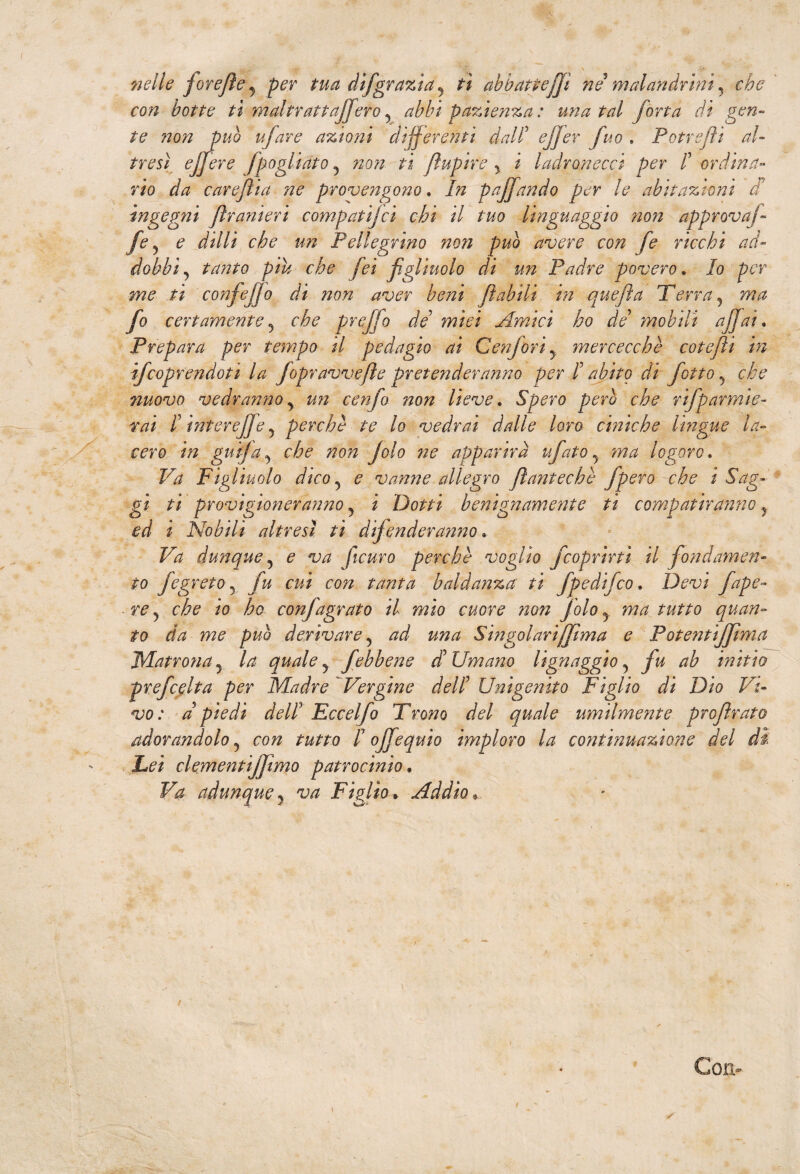 nelle foreſte, per tua diſgrazia, ti abbatteſſi ne' malandrini, che
con botte ti maltrattaſſero, abbi pazienza: una tal ſorta di gen-
te non può uſare azioni differenti dall' eſſer ſuo. Potreſti al-
tresì eſſere ſpogliato, non ti ſtupire, i ladronecci per l' ordina-
rio da careſtia ne provengono. In paſſando per le abitazioni d'
ingegni ſtranieri compatiſci chi il tuo linguaggio non approvaſ-
ſe, e dilli che un Pellegrino non può avere con ſe ricchi ad-
dobbi, tanto più che ſei figliuolo di un Padre povero. Io per
me ti confeſſo di non aver beni ſtabili in queſta Terra, ma
ſo certamente, che preſſo de' miei Amici ho de' mobili aſſai.
Prepara per tempo il pedagio ai Cenſori, mercecchè coteſti in
iſcoprendoti la ſopravveſte pretenderanno per l' abito di ſotto, che
nuovo vedranno, un cenſo non lieve. Spero però che riſparmie-
rai l' intereſſe, perchè te lo vedrai dalle loro ciniche lingue la-
cero in guiſa, che non ſolo ne apparirà uſato, ma logoro.
Va Figliuolo dico, e vanne allegro ſtantechè ſpero che i Sag-
gi ti provigioneranno, i Dotti benignamente ti compatiranno,
ed i Nobili altresì ti difenderanno.
Va dunque, e va ſicuro perchè voglio ſcoprirti il fondamen-
to ſegreto, ſu cui con tanta baldanza ti ſpediſco. Devi ſape-
re, che io ho conſagrato il mio cuore non ſolo, ma tutto quan-
to da me può derivare, ad una Singolariſſima e Potentiſſima
Matrona, la quale, ſebbene d' Umano lignaggio, fu ab initio
preſcelta per Madre Vergine dell' Unigenito Figlio di Dio Vi-
vo: a' piedi dell' Eccelſo Trono del quale umilmente proſtrato
adorandolo, con tutto l' oſſequio imploro la continuazione del di
Lei clementiſſimo patrocinio.
Va adunque, va Figlio. Addio.
Con-